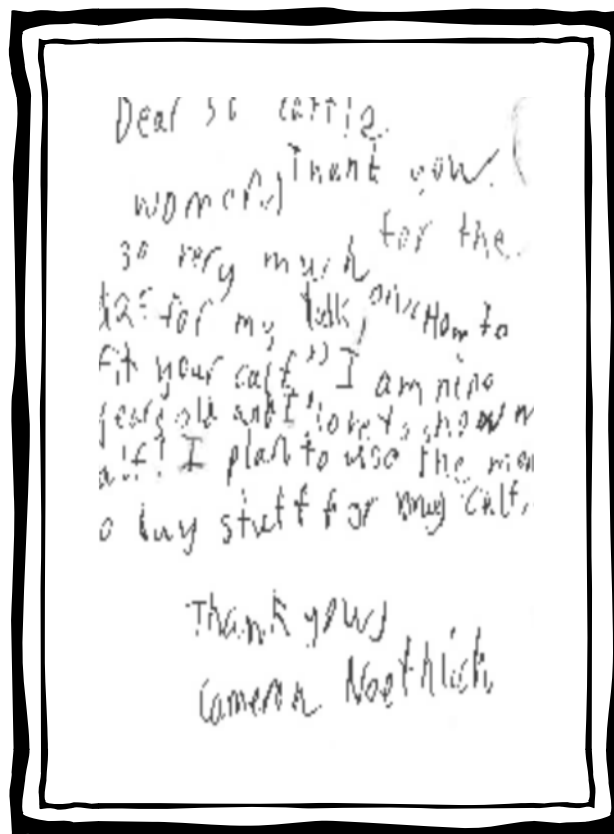 Dear
Thank you
for the
so very much
for my talk, How to
Fit your calf" I am nine
years old and I love to show m
alf! I plan to use the mon
o buy stuff for my calf.
Thank you,
Cameron Noethlich